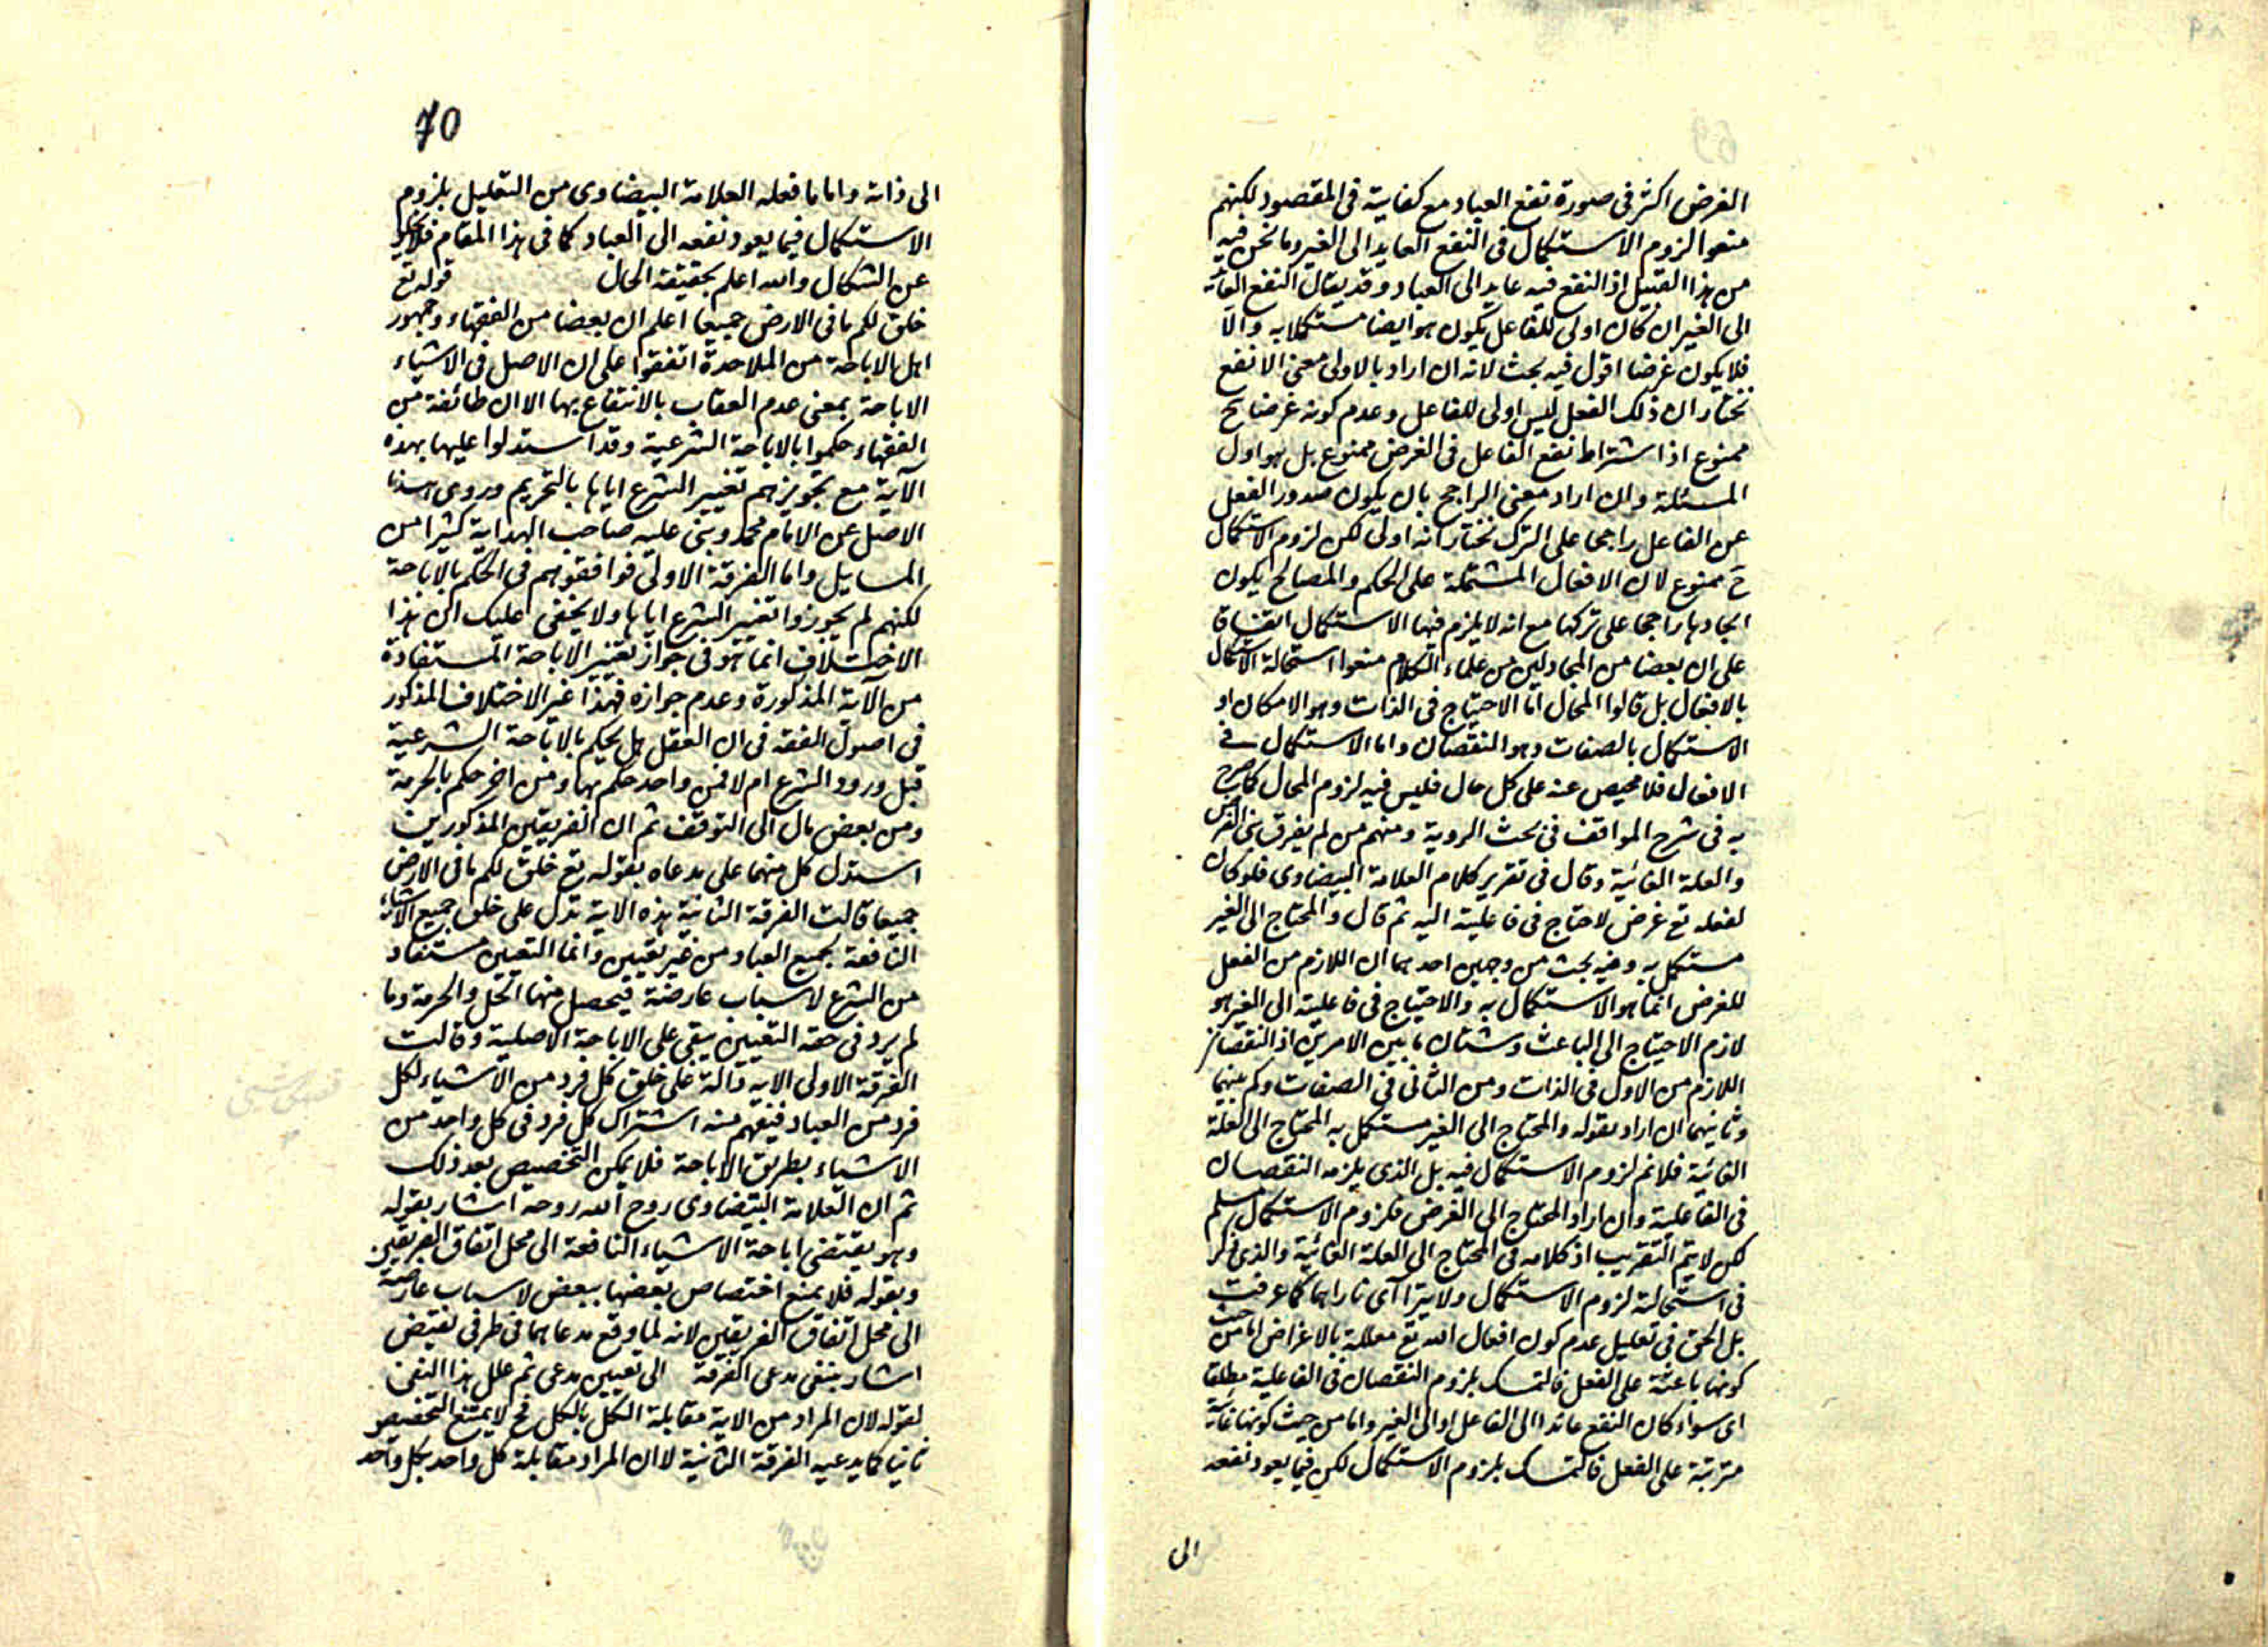 الغرض اكثر فى صورة نفع العباد مع كفايته فى المقصود لكنهم
منعوا لزوم الاستكمال فى النفع العايد الى الغير وما نحن فيه
من هذا القبيل اذ النفع فيه عايد الى العباد وقد يقال النفع العائد
الى الغير ان كان اولى للفاعل يكون هو ايضا مستكملا به والا
فلا يكون غرضا اقول فيه بحث لانه ان اراد بالاولى معنى الانفع
نختار ان ذلك الفعل ليس اولى للفاعل وعدم كونه غرضا ح
ممنوع اذ اشتراط نفع الفاعل فى الغرض ممنوع بل هو اول
المسئلة وان اراد معنى الراجح بان يكون صدور الفعل
عن الفاعل راجحا على الترك نختار انه اولى لكن لزوم الاستكمال
ح ممنوع لان الافعال المشتملة على الحكم والمصالح يكون
ايجادها راجحا على تركها مع انه لا يلزم فيها الاستكمال اتفاقا
على ان بعضا من المجادلين من علماء الكلام منعوا استحالة الاستكمال
بالافعال بل قالوا المحال اما الاحتياج فى الذات وهو الامكان او
الاستكمال بالصفات وهو النقصان واما الاستكمال فى
الافعال فلا محيص عنه على كل حال فليس فيه لزوم المحال كما صرح
به فى شرح المواقف فى بحث الروية ومنهم من لم يفرق بين الغرض
والعلة الغائية وقال فى تقرير كلام العلامة البيضاوى فلو كان
لفعله تع غرض لاحتاج فى فاعليته اليه ثم قال والمحتاج الى الغير
مستكمل به وفيه بحث من وجهين احدهما ان اللازم من الفعل
للغرض انما هو الاستكمال به والاحتياج فى فاعليته الى الغير هو
لازم الاحتياج الى الباعث وشتان ما بين الامرين اذ النقصان
اللازم من الاول فى الذات ومن الثانى فى الصفات وكم بينهما
وثانيهما ان اراد بقوله والمحتاج الى الغير مستكمل به المحتاج الى العلة
الغائية فلا نم لزوم الاستكمال فيه بل الذى يلزمه النقصان
فى الفاعلية وان اراد المحتاج الى الغرض فلزوم الاستكمال مسلم
لكن لا يتم التقريب اذ كلامه فى المحتاج الى العلة الغائية والذى ذكر
فى استحالته لزوم الاستكمال ولا يترا آى ناراهما كما عرفت
بل الحق فى تعليل عدم كون افعال الله تع معللة بالاغراض اما من حيث
كونها باعثة على الفعل فالتمسك بلزوم النقصان فى الفاعلية مطلقا
اى سواء كان النفع عائدا الى الفاعل او الى الغير واما من حيث كونها غائية
مترتبة على الفعل فالتمسك بلزوم الاستكمال لكن فيما يعود نفعه
الى
70
الى ذاته واما ما فعله العلامة البيضاوى من التعليل بلزوم
الاستكمال فيما يعود نفعه الى العباد كما فى هذا المقام فلا يخلو
عن اشكال والله اعلم بحقيقة الحال قوله تع
خلق لكم ما فى الارض جميعا اعلم ان بعضا من الفقهاء وجمهور
اهل الاباحة من الملاحدة اتفقوا على ان الاصل فى الاشياء
الاباحة بمعنى عدم العقاب بالانتفاع بها الا ان طائفة من
الفقهاء حكموا بالاباحة الشرعية وقد استدلوا عليها بهذه
الآية مع تجويزهم تغيير الشرع اياها بالتحريم وروى هذا
الاصل عن الامام محمد وبنى عليه صاحب الهداية كثيرا من
المسايل واما الفرقة الاولى فوافقوهم فى الحكم بالاباحة
لكنهم لم يجوزوا تغيير الشرع اياها ولا يخفى عليك ان هذا
الاختلاف انما هو فى جواز تغيير الاباحة المستفادة
من الآية المذكورة وعدم جوازه فهذا غير الاختلاف المذكور
فى اصول الفقه فى ان العقل هل يحكم بالاباحة الشرعية
قبل ورود الشرع ام لا فمن واحد حكم بها ومن اخر حكم بالحرمة
ومن بعض مال الى التوقف ثم ان الفريقين المذكورين
استدل كل منهما على مدعاه بقوله تع خلق لكم ما فى الارض
جميعا قالت الفرقة الثانية هذه الاية تدل على خلق جميع الاشياء
النافعة لجميع العباد من غير تعيين وانما التعيين مستفاد
من الشرع لاسباب عارضة فيحصل منها الحل والحرمة وما
لم يرد فى حقه التعيين يبقى على الاباحة الاصلية وقالت
الفرقة الاولى الاية دالة على خلق كل فرد من الاشياء لكل
فرد من العباد فيفهم منه اشتراك كل فرد فى كل واحد من
الاشياء بطريق الاباحة فلا يمكن التخصيص بعد ذلك
ثم ان العلامة البيضاوى روح الله روحه اشار بقوله
وهو يقتضى اباحة الاشياء النافعة الى محل اتفاق الفريقين
وبقوله فلا يمنع اختصاص بعضها ببعض لاسباب عارضة
الى محل اتفاق الفريقين لانه لما وقع مدعاهما فى طرفى نقيض
اشار بنفى مدعى الفرقة الى تعيين مدعى ثم علل هذا النفى
بقوله لان المراد من الاية مقابلة الكل بالكل فح لا يمتنع التخصيص
ثانيا كما يدعيه الفرقة الثانية لا ان المراد مقابلة كل واحد بكل واحد